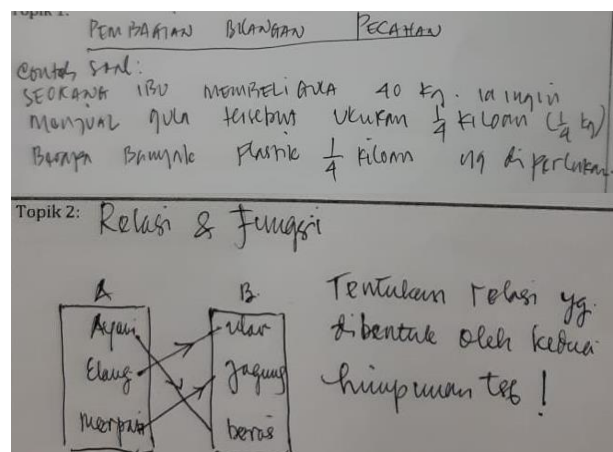 Topik 1:
PEMBAGIAN BILANGAN PECAHAN
Contoh soal:
SEORANG IBU MEMBELI GULA 40 kg. ia ingin
Menjual gula tersebut ukuran 1/4 kiloan (1/4 kg)
Berapa Banyak Plastik 1/4 kiloan yg diperlukan.
Topik 2: Relasi & Fungsi
A B
Ayam ular
Elang Jagung
Merpati beras
Tentukan relasi yg
dibentuk oleh kedua
himpunan tsb!